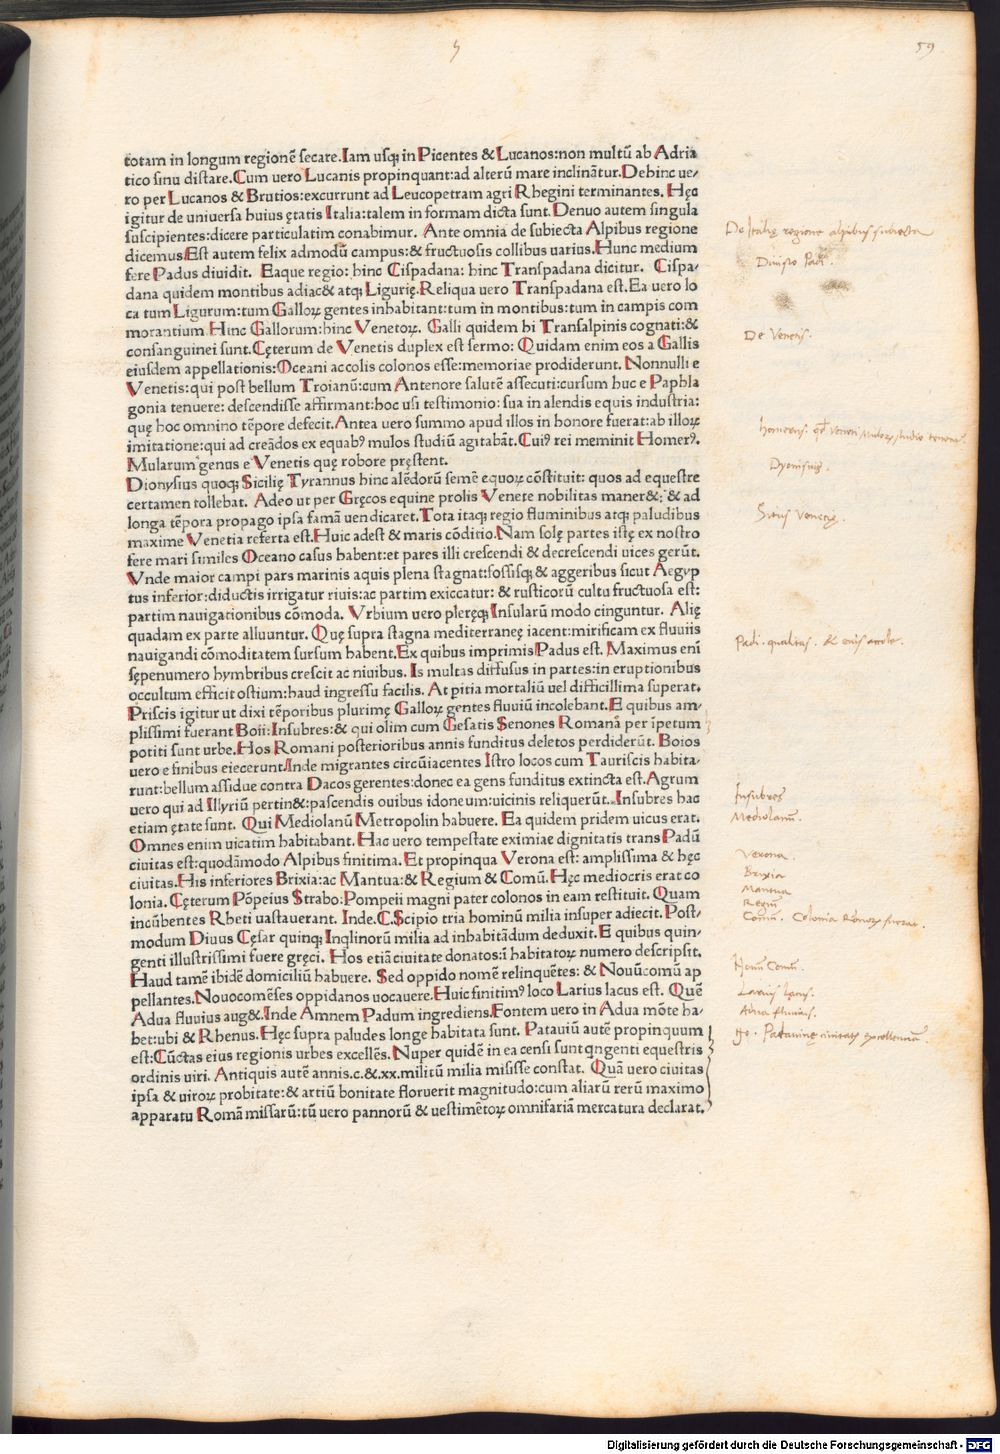 59
totam in longum regionē secare.Iam usq; in Picentes & Lucanos:non multū ab Adria
tico sinu distare.Cum uero Lucanis propinquant:ad alterū mare inclināt̄ur.Debinc ue/
ro per Lucanos & Brutios:excurrunt ad Leucopetram agri Rhegini terminantes. Hęc
igitur de uniuersa huius ętatis Italia:talem in formam dicta sunt. Denuo autem singula
suscipientes:dicere particulatim conabimur. Ante omnia de subiecta Alpibus regione
De Italię regione alpibus subiecta
dicemus.Est autem felix admodū campus:& fructuosis collibus uarius.Hunc medium
Diuisio Padi.
fere Padus diuidit. Eaque regio: hinc Cispadana: hinc Transpadana dicitur. Cispa/
dana quidem montibus adiac& atq; Ligurię.Reliqua uero Transpadana est.Ea uero lo
ca tum Ligurum:tum Galloꝝ gentes inhabitant:tum in montibus:tum in campis com
morantium. Hinc Gallorum:hinc Venetoꝝ. Galli quidem hi Transalpinis cognati:&
De Venetis.
consanguinei sunt.Cęterum de Venetis duplex est sermo: Quidam enim eos a Gallis
eiusdem appellationis:Oceani accolis colonos esse:memoriae prodiderunt. Nonnulli e
Venetis:qui post bellum Troianū:cum Antenore salutē assecuti:cursum huc e Paphla
gonia tenuere: descendisse affirmant:hoc usi testimonio: sua in alendis equis industria:
quę hoc omnino tēpore defecit.Antea uero summo apud illos in honore fuerat:ab illoꝝ
imitatione:qui ad creādos ex equabꝰ mulos studiū agitabāt. Cuiꝰ rei meminit Homerꝰ.
Mularum genus e Venetis quę robore pręstent.
Dyonisius.
Dionysius quoq; Sicilię Tyrannus hinc alēdorū semē equoꝝ cōstituit: quos ad equestre
certamen tollebat. Adeo ut per Gręcos equine prolis Venete nobilitas maner&: & ad
longa tēpora propago ipsa famā uendicaret. Tota itaq; regio fluminibus atq; paludibus
Situs Venetię.
maxime Venetia referta est.Huic adest & maris cōditio.Nam solę partes istę ex nostro
fere mari similes Oceano casus habent:et pares illi crescendi & decrescendi uices gerūt.
Vnde maior campi pars marinis aquis plena stagnat:fossisq; & aggeribus sicut Aegyp
tus inferior:diductis irrigatur riuis:ac partim exiccatur: & rusticorū cultu fructuosa est:
partim nauigationibus cōmoda. Vrbium uero pleręq; Insularū modo cinguntur. Alię
quadam ex parte alluuntur. Quę supra stagna mediterraneę iacent:mirificam ex fluuiis
Padi. qualitas. & eius accole.
nauigandi cōmoditatem sursum habent.Ex quibus imprimis Padus est. Maximus enī
sępenumero hymbribus crescit ac niuibus. Is multas diffusus in partes:in eruptionibus
occultum efficit ostium:haud ingressu facilis. At pitia mortaliū uel difficillima superat.
Priscis igitur ut dixi tēporibus plurimę Galloꝝ gentes fluuiū incolebant.E quibus am/
plissimi fuerant Boii:Insubres:& qui olim cum Gesatis Senones Romanā per īpetum
potiti sunt urbe.Hos Romani posterioribus annis funditus deletos perdiderūt. Boios
uero e finibus eiecerunt.Inde migrantes circūiacentes Istro locos cum Tauriscis habita/
runt:bellum assidue contra Dacos gerentes:donec ea gens funditus extincta est.Agrum
uero qui ad Illyriū pertin&:pascendis ouibus idoneum:uicinis reliquerūt. Insubres hac
Insubres
etiam ętate sunt. Qui Mediolanū Metropolin habuere. Ea quidem pridem uicus erat.
Mediolanū.
Omnes enim uicatim habitabant. Hac uero tempestate eximiae dignitatis trans Padū
ciuitas est:quodāmodo Alpibus finitima. Et propinqua Verona est: amplissima & hęc
Verona.
ciuitas.His inferiores Brixia:ac Mantua:& Regium & Comū. Hęc mediocris erat co
Brixia
Mantua
lonia. Cęterum Pōpeius Strabo:Pompeii magni pater colonos in eam restituit. Quam
Regiū
incūbentes Rheti uastauerant. Inde.C.Scipio tria hominū milia insuper adiecit.Post/
Comū. Colonia
modum Diuus Cęsar quinq; Inqlinorū milia ad inhabitādum deduxit.E quibus quin/
genti illustrissimi fuere gręci. Hos etiā ciuitate donatos:ī habitatoꝝ numero descripsit.
Nouū Comū.
Haud tamē ibidē domiciliū habuere. Sed oppido nomē relinquētes: & Nouūcomū ap
pellantes.Nouocomēses oppidanos uocauere.Huic finitimꝰ loco Larius lacus est. Quē
Larius Lacus.
Adua fluuius aug&.Inde Amnem Padum ingrediens.Fontem uero in Adua mōte ha/
Adua fluuius.
bet:ubi & Rhenus. Hęc supra paludes longe habitata sunt. Patauiū autē propinquum
est:Cūctas eius regionis urbes excellēs. Nuper quidē in ea censi sunt qngenti equestris
ordinis uiri. Antiquis autē annis.c.&.xx.militū milia misisse constat. Quā uero ciuitas
ipsa & uiroꝝ probitate:& artiū bonitate floruerit magnitudo:cum aliarū rerū maximo
apparatu Romā missarū:tū uero pannorū & uestimētoꝝ omnifariā mercatura declarat.
Digitalisierung gefördert durch die Deutsche Forschungsgemeinschaft - DFG